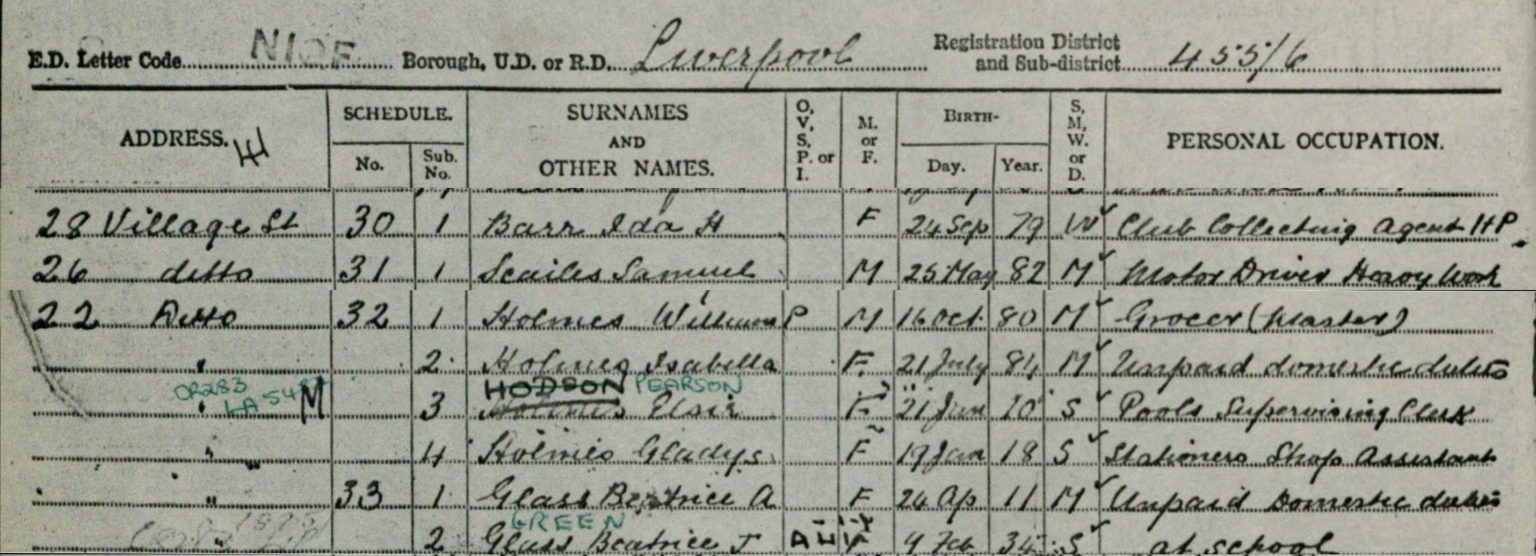 E.D. Letter Code NIOF Borough, U.D. or R.D. Liverpool Registration District and Sub-district 455/6
ADDRESS. SCHEDULE. No. Sub. No. SURNAMES AND OTHER NAMES. O, V, S, P. or I. M. or F. BIRTH- Day. Year. S, M, W. or D. PERSONAL OCCUPATION.
28 Village St 30 1 Barr Ida H F 24 Sep 79 W Club Collecting Agent HP
26 ditto 31 1 Scailes Samuel M 25 May 82 M Motor Driver Heavy Work
22 Ditto 32 1 Holmes William P M 16 Oct 80 M Grocer (Master)
" 2 Holmes Isabella F 21 July 84 M Unpaid domestic duties
HODSON PEARSON
CR283 LA 54 M " 3 Holmes Elsie F 21 Jun 10 S Pools Supervising Clerk
" 4 Holmes Gladys F 19 Jan 18 S Stationers Shop Assistant
" 33 1 Glass Beatrice A F 24 Ap 11 M Unpaid Domestic duties
GREEN
" 2 Glass Beatrice J F 9 Feb 35 S at school